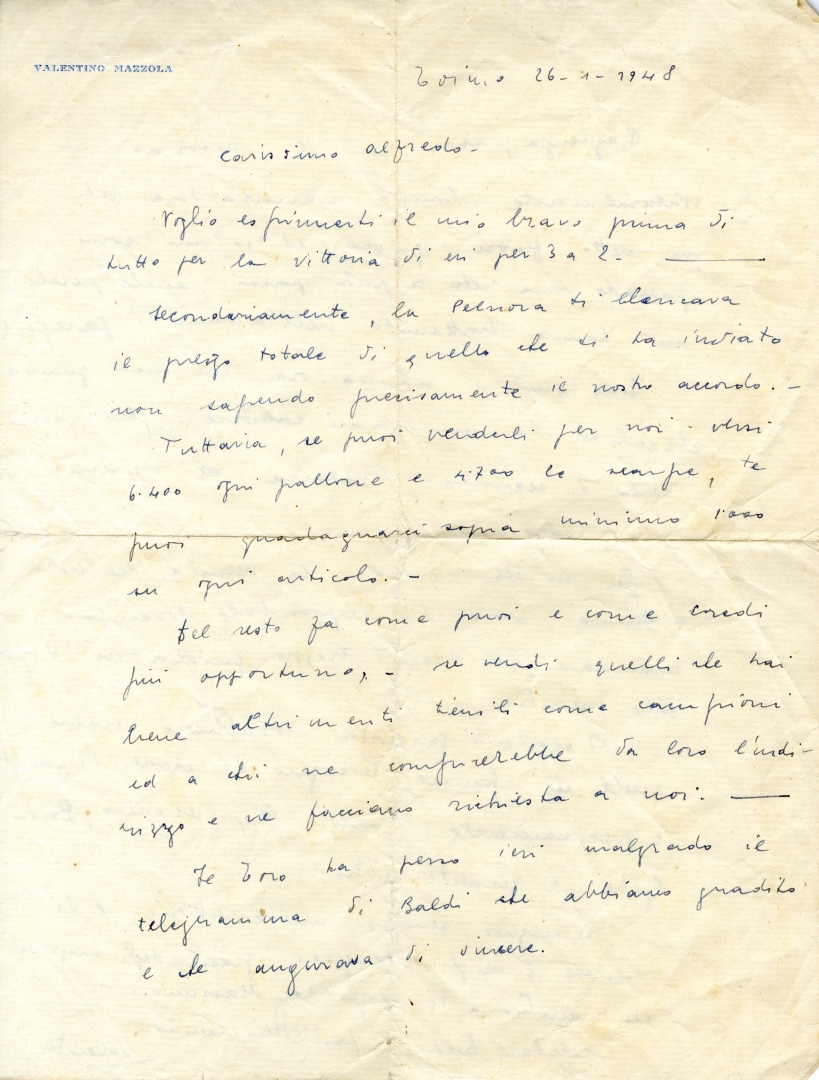 VALENTINO MAZZOLA
Torino 26-1-1948
Carissimo Alfredo -
Voglio esprimerti il mio bravo prima di
tutto per la vittoria di eri per 3 a 2. -
Secondariamente, la ti elencava
il prezzo totale di quello che ti ha indiato
non sapendo precisamente il nostro accordo. -
Tuttavia, se puoi venderli per noi - versi
6.400 ogni pallone e 4700 le scarpe, te
puoi guadagnarci sopra minimo 1000
su ogni articolo. -
Del resto fa come puoi e come credi
più opportuno, - se vendi quelli che hai
bene altrimenti tienili come campioni
ed a chi ne comprerebbe da loro l'indi-
rizzo e ne facciano richiesta a noi. -
Il Toro ha perso ieri malgrado il
telegramma di Baldi che abbiamo gradito
e che augurava di vincere.